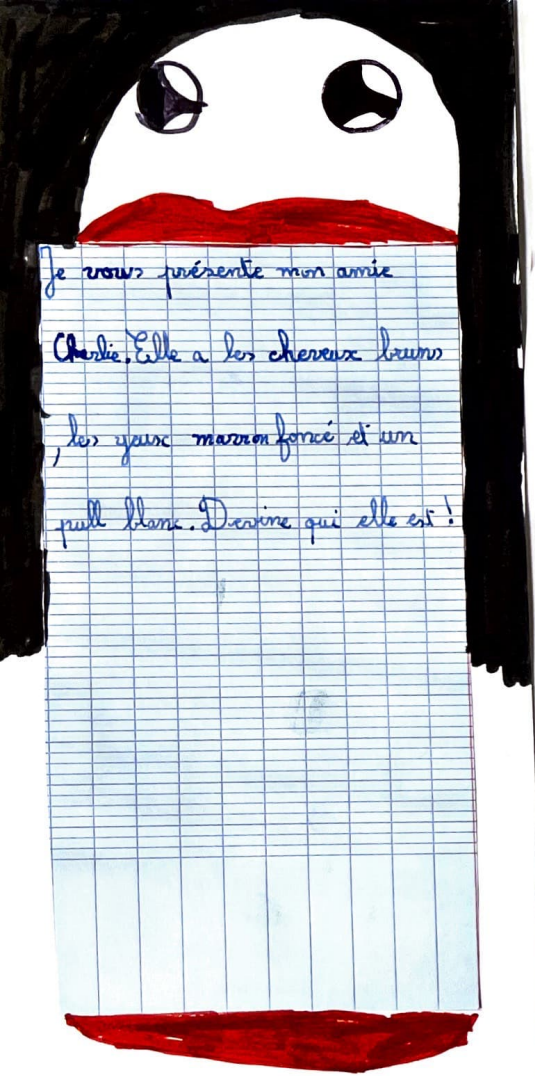 Je vous présente mon amie
Charlie. Elle a les cheveux bruns
, les yeux marron foncé et un
pull blanc. Devine qui elle est !